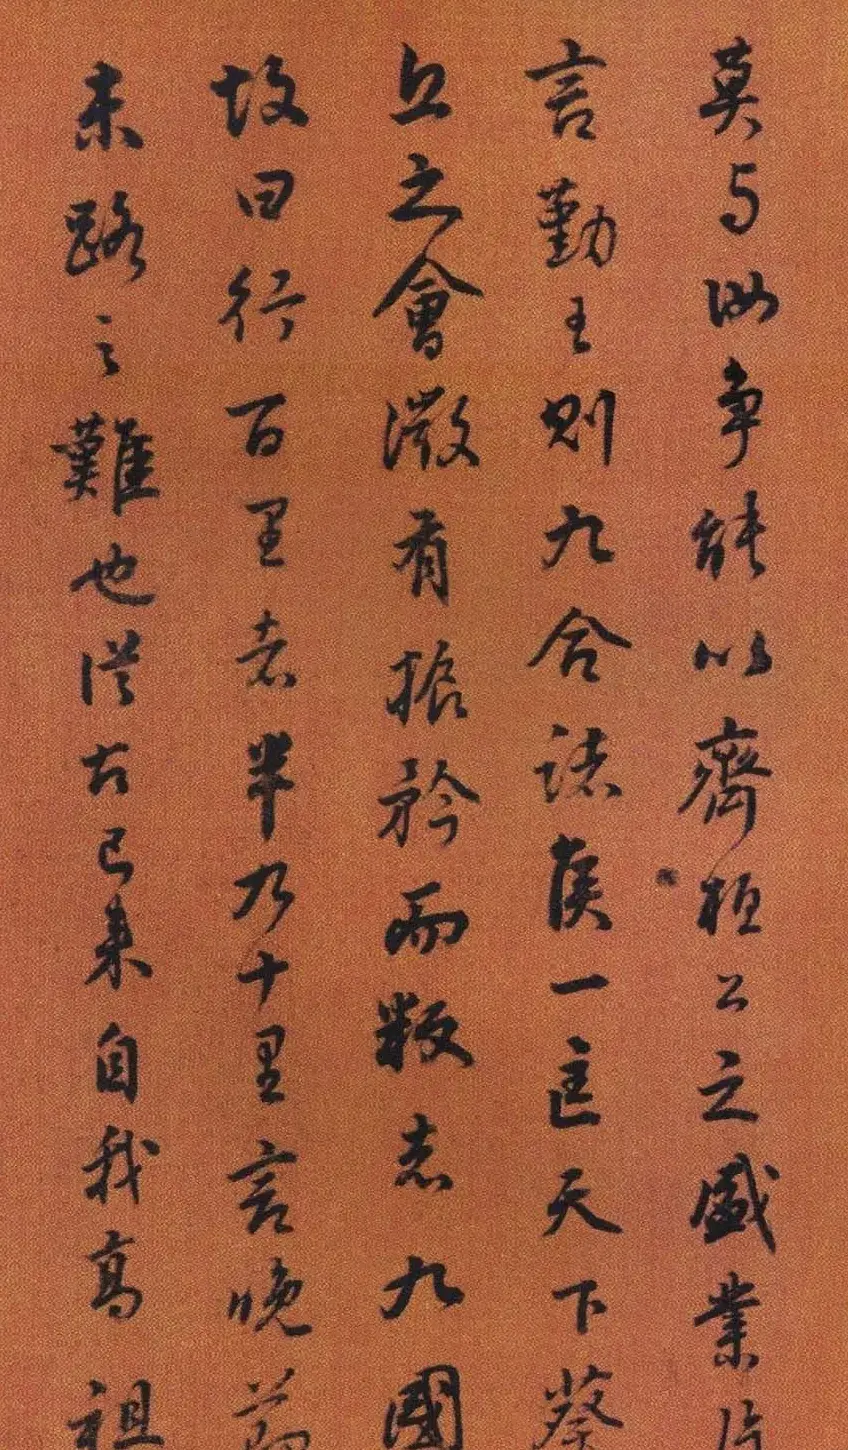 莫与㳂争能以齊桓公之盛業片
言勤王則九合諸侯一匡天下葵
丘之會微有振矜而叛者九國
故曰行百里者半九十里言晚節
末路之難也從古已来自我高祖